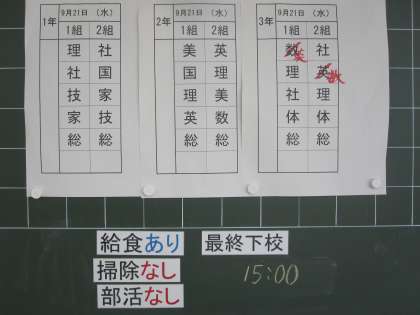 1年 9月21日 (水)
1組 2組
理 社
社 国
技 家
家 技
総 総
2年 9月21日 (水)
1組 2組
美 英
国 理
理 美
英 数
総 総
3年 9月21日 (水)
1組 2組
数 英 社
理 英 数
社 理
体 体
総 総
給食あり 最終下校
掃除なし 15:00
部活なし